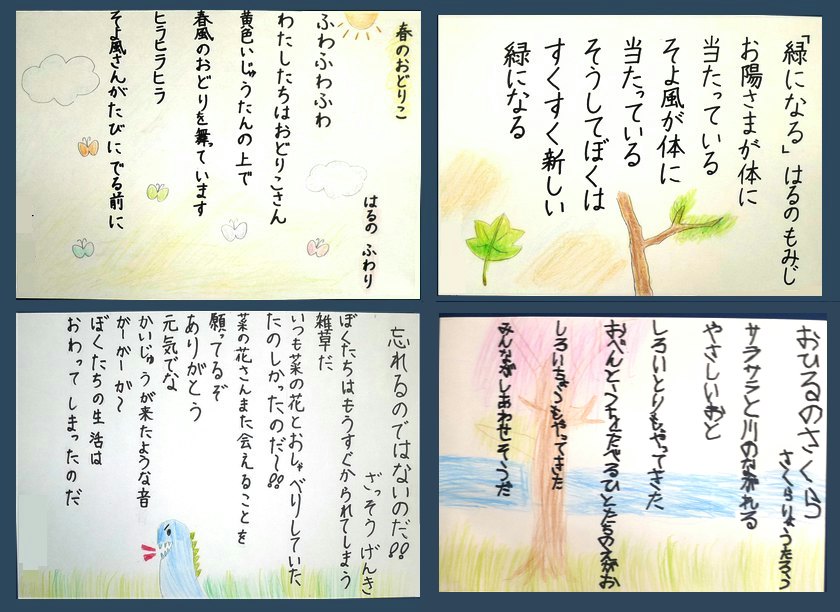 春のおどりこ
はるの ふわり
ふわふわふわ
わたしたちはおどりこさん
黄色いじゅうたんの上で
春風のおどりを舞っています
ヒラヒラヒラ
そよ風さんがたびにでる前に
「緑になる」 はるのもみじ
お陽さまが体に
当たっている
そよ風が体に
当たっている
そうしてぼくは
すくすく新しい
緑になる
忘れるのではないのだ!!
ざっそう げんき
ぼくたちはもうすぐかられてしまう
雑草だ
いつも菜の花とおしゃべりしていた
たのしかったのだ〜!!
菜の花さんまた会えることを
願ってるぞ
ありがとう
元気でな
かいじゅうが来たような音
がーがーが〜
ぼくたちの生活は
おわって しまったのだ
おひるのさくら
さくらりょうたろう
サラサラと川のながれる
やさしいおと
しろいとりもやってきた
おべんとうをたべるひとたちのえがお
しろいちょうもやってきた
みんながしあわせそうだ